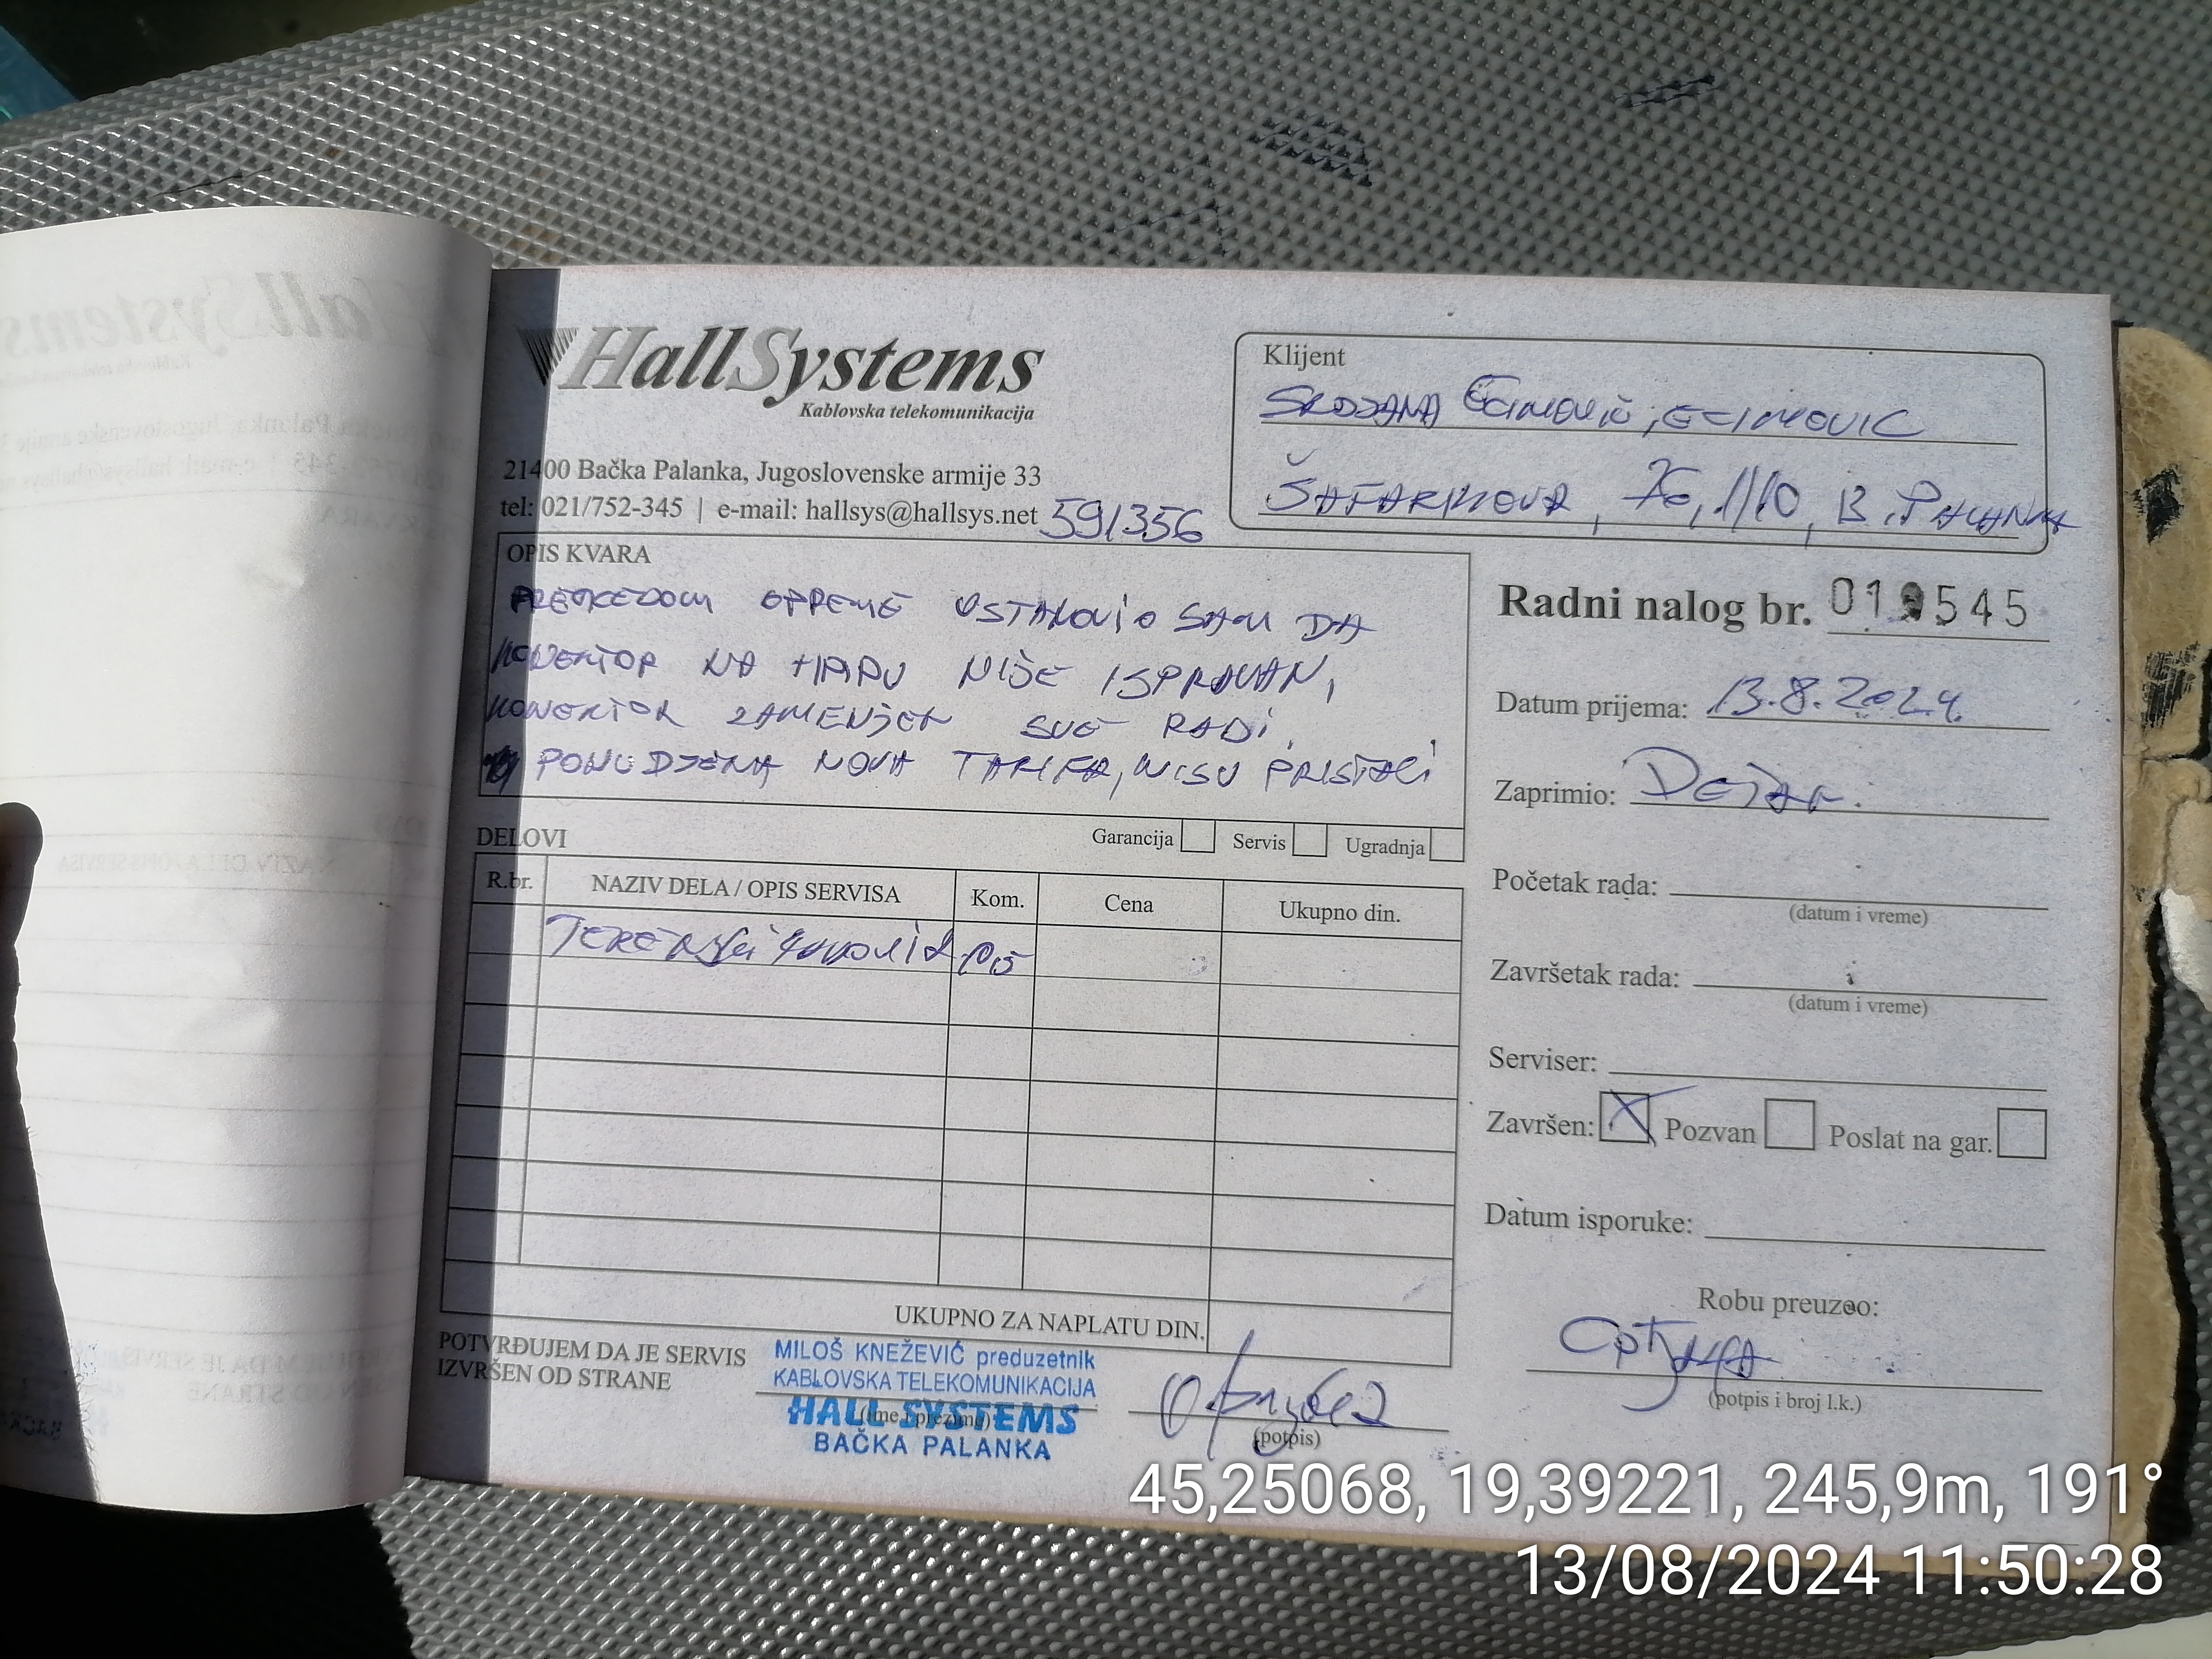 HallSystems
Kablovska telekomunikacija
21400 Bačka Palanka, Jugoslovenske armije 33
tel: 021/752-345 | e-mail: hallsys@hallsys.net
591356
Klijent
ECIMOVIC
ŠAFARIKOVA, 1/10, B. PALANKA
OPIS KVARA
OPREME USTANOVIO SAM DA
KONEKTOR NA NIJE ISPRAVAN,
KONEKTOR ZAMENJEN SVE RADI,
PONUDJENA NOVA TARIFA, NISU PRISTALI
Radni nalog br. 545
Datum prijema: 13.8.2024.
Zaprimio: DEJAN.
Početak rada:
(datum i vreme)
Završetak rada:
(datum i vreme)
Serviser:
Završen: X Pozvan Poslat na gar.
Datum isporuke:
Robu preuzeo:
(potpis i broj l.k.)
DELOVI
Garancija Servis Ugradnja
R.br. NAZIV DELA / OPIS SERVISA Kom. Cena Ukupno din.
UKUPNO ZA NAPLATU DIN.
POTVRĐUJEM DA JE SERVIS
IZVRŠEN OD STRANE
MILOŠ KNEŽEVIĆ preduzetnik
KABLOVSKA TELEKOMUNIKACIJA
HALL SYSTEMS
(ime i prezime)
BAČKA PALANKA
(potpis)
45,25068, 19,39221, 245,9m, 191°
13/08/2024 11:50:28